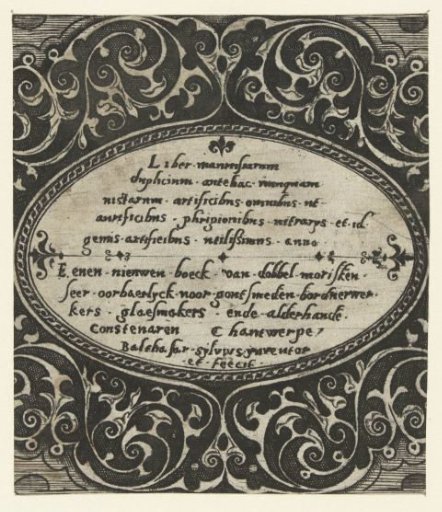 Liber mauresarum
duplicium · antehac · nunquam
vistarum · artificibus · omnibus · ut
aurificibus · phrigionibus · vitrarys · et · id
genis · artificibus · utilissimus · anno
Eenen · nieuwen · boeck · van · dobbel · morisken ·
seer · oorbaerlyck · voor · gontsmeden · borduerwer ·
kers · glaesmakers · ende · alderhande ·
Constenaren Chantwerpe
Baltha sar · sylvius · juventor
et · feecit